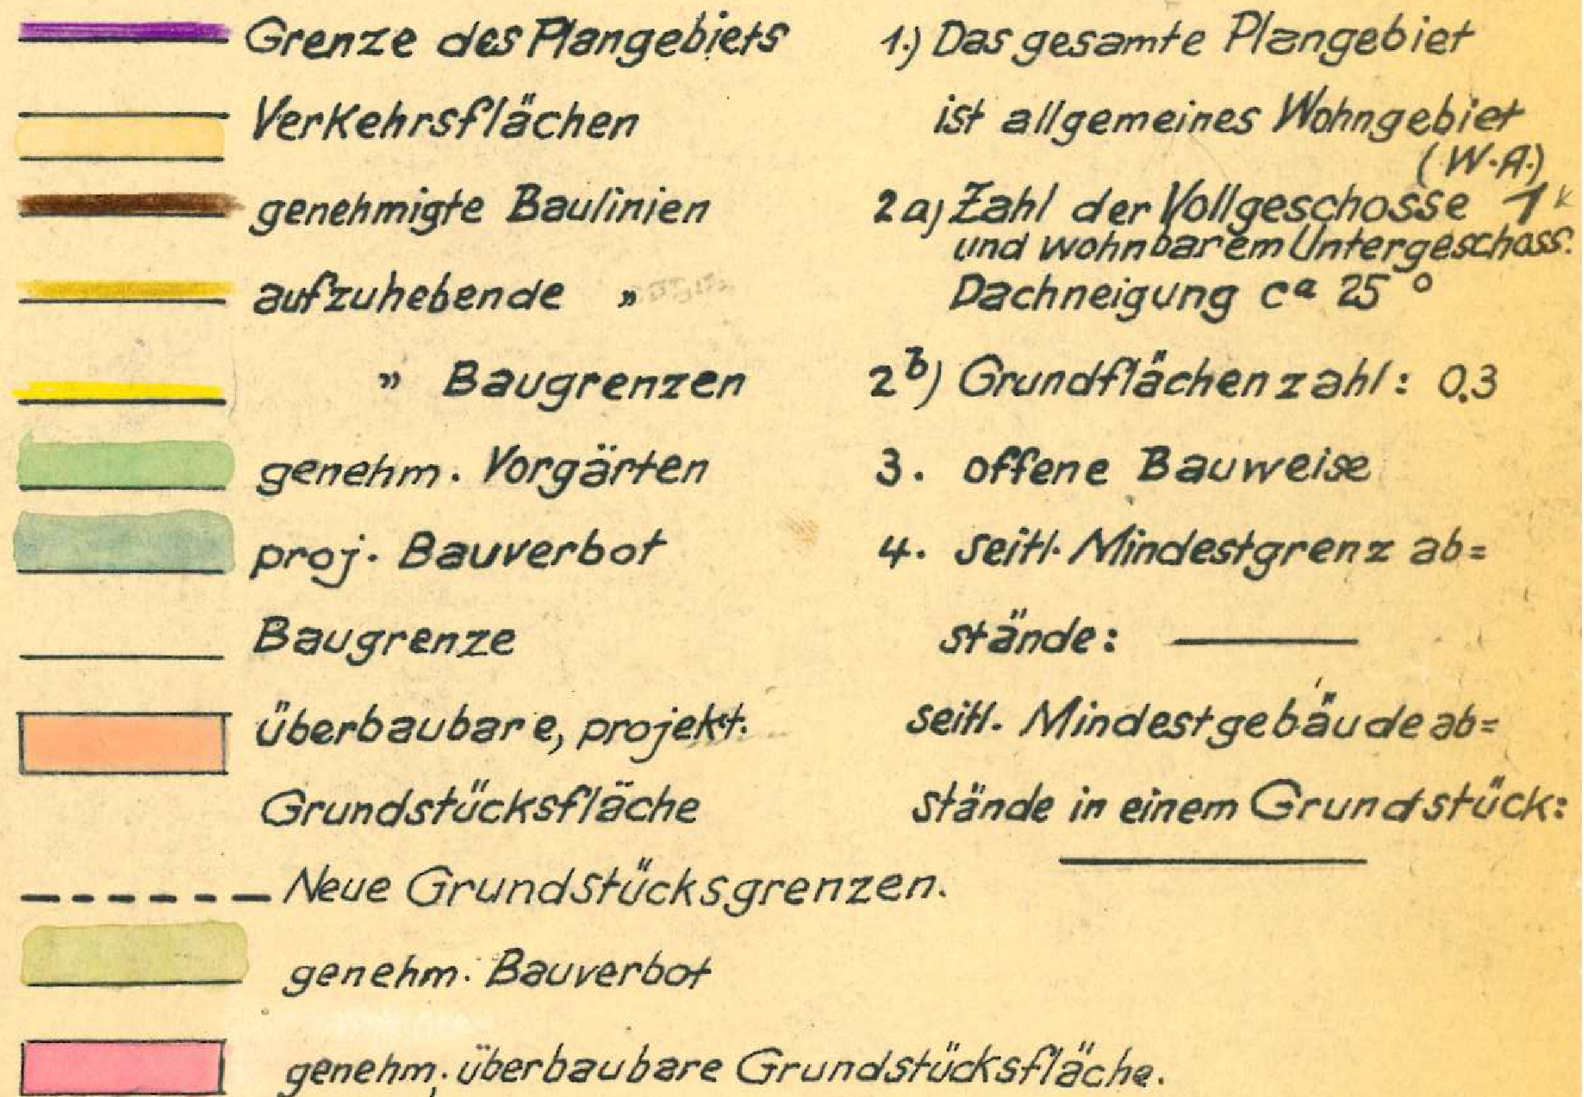 Grenze des Plangebiets
Verkehrsflächen
genehmigte Baulinien
aufzuhebende "
" Baugrenzen
genehm. Vorgärten
proj. Bauverbot
Baugrenze
überbaubare, projekt.
Grundstücksfläche
Neue Grundstücksgrenzen.
genehm. Bauverbot
genehm. überbaubare Grundstücksfläche.
1.) Das gesamte Plangebiet
ist allgemeines Wohngebiet
(W.A.)
2a) Zahl der Vollgeschosse 1
und wohnbarem Untergeschoss.
Dachneigung ca 25°
2b) Grundflächenzahl: 0,3
3. offene Bauweise
4. seitl. Mindestgrenzab=
stände: ——
seitl. Mindestgebäudeab=
stände in einem Grundstück:
——